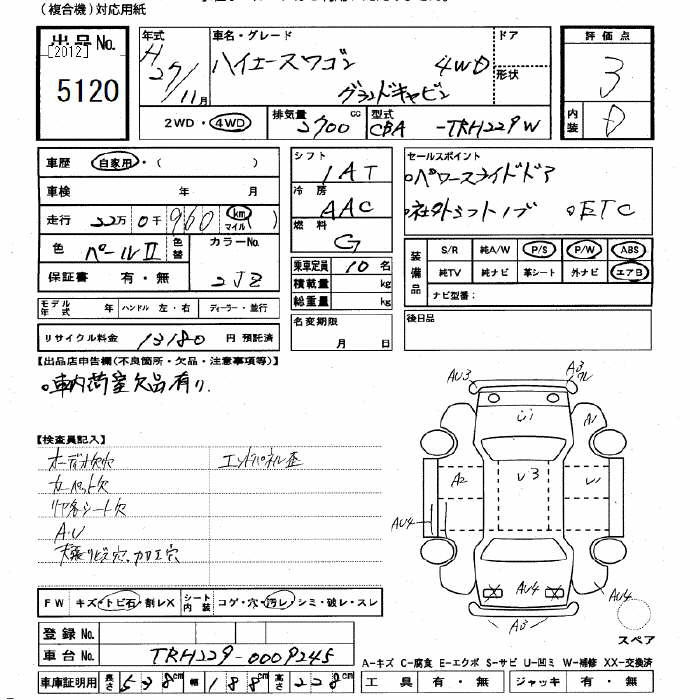 (複合機)対応用紙
出品No. [2012] 5120
年式 H 27/11月
車名・グレード ハイエースワゴン 4WD グランドキャビン
ドア
形状
評価点 3
内装 D
2WD・4WD
排気量 2700 cc
型式 CBA -TRH229W
車歴 自家用・( )
車検 年 月
走行 22万 0千 960 km マイル ( )
色 パールⅡ 色替
カラーNo. 2JZ
保証書 有・無
モデル年式 年 ハンドル 左・右 ディーラー・並行
リサイクル料金 13180 円 預託済
シフト 1AT
冷房 AAC
燃料 G
乗車定員 10 名
積載量 kg
総重量 kg
名変期限 月 日
セールスポイント
・パワースライドドア
・社外シフトノブ ・ETC
装備品
S/R 純A/W P/S P/W ABS
純TV 純ナビ 革シート 外ナビ エアB
ナビ型番:
後日品
【出品店申告欄(不良箇所・欠品・注意事項等)】
・車内荷室欠品有り
【検査員記入】
オーディオ欠穴 エンドパネル歪
カーペット欠
リヤ各シート欠
A・U
天張リビス穴、加工穴
AU3 A3 ワレ
U1
A1
A2
U3
U1
AU4
AU4
AU4
A3
スペア
FW キズ・トビ石・割レX
シート内装 コゲ・穴・汚レ・シミ・破レ・スレ
登録No.
車台No. TRH229-0009245
車庫証明用 長さ 538cm 幅 188cm 高さ 228cm
A-キズ C-腐食 E-エクボ S-サビ U-凹ミ W-補修 XX-交換済
工具 有・無 ジャッキ 有・無